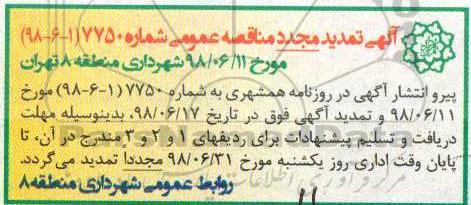 آگهی تمدید مجدد مناقصه عمومی شماره ۷۷۵۰ (۱-۶-۹۸)
مورخ ۹۸/۰۶/۱۱ شهرداری منطقه ۸ تهران
پیرو انتشار آگهی در روزنامه همشهری به شماره ۷۷۵۰ (۱-۶-۹۸) مورخ
۹۸/۰۶/۱۱ و تمدید آگهی فوق در تاریخ ۹۸/۰۶/۱۷، بدینوسیله مهلت
دریافت و تسلیم پیشنهادات برای ردیفهای ۱ و ۲ و ۳ مندرج در آن، تا
پایان وقت اداری روز یکشنبه مورخ ۹۸/۰۶/۳۱ مجددا تمدید می‌گردد.
روابط عمومی شهرداری منطقه ۸
۱۱